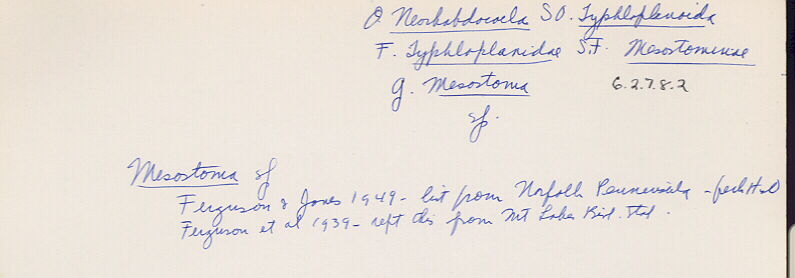 O. Neorhabdocoela SO. Typhloplanoida
F. Typhloplanidae S.F. Mesostominae
G. Mesostoma 6.2.7.8.2
sp.
Mesostoma sp
Ferguson & Jones 1949 - list from Norfolk Penninsula - fresh H2O
Ferguson et al 1939 - rept this from Mt Lakes Biol. Stat.